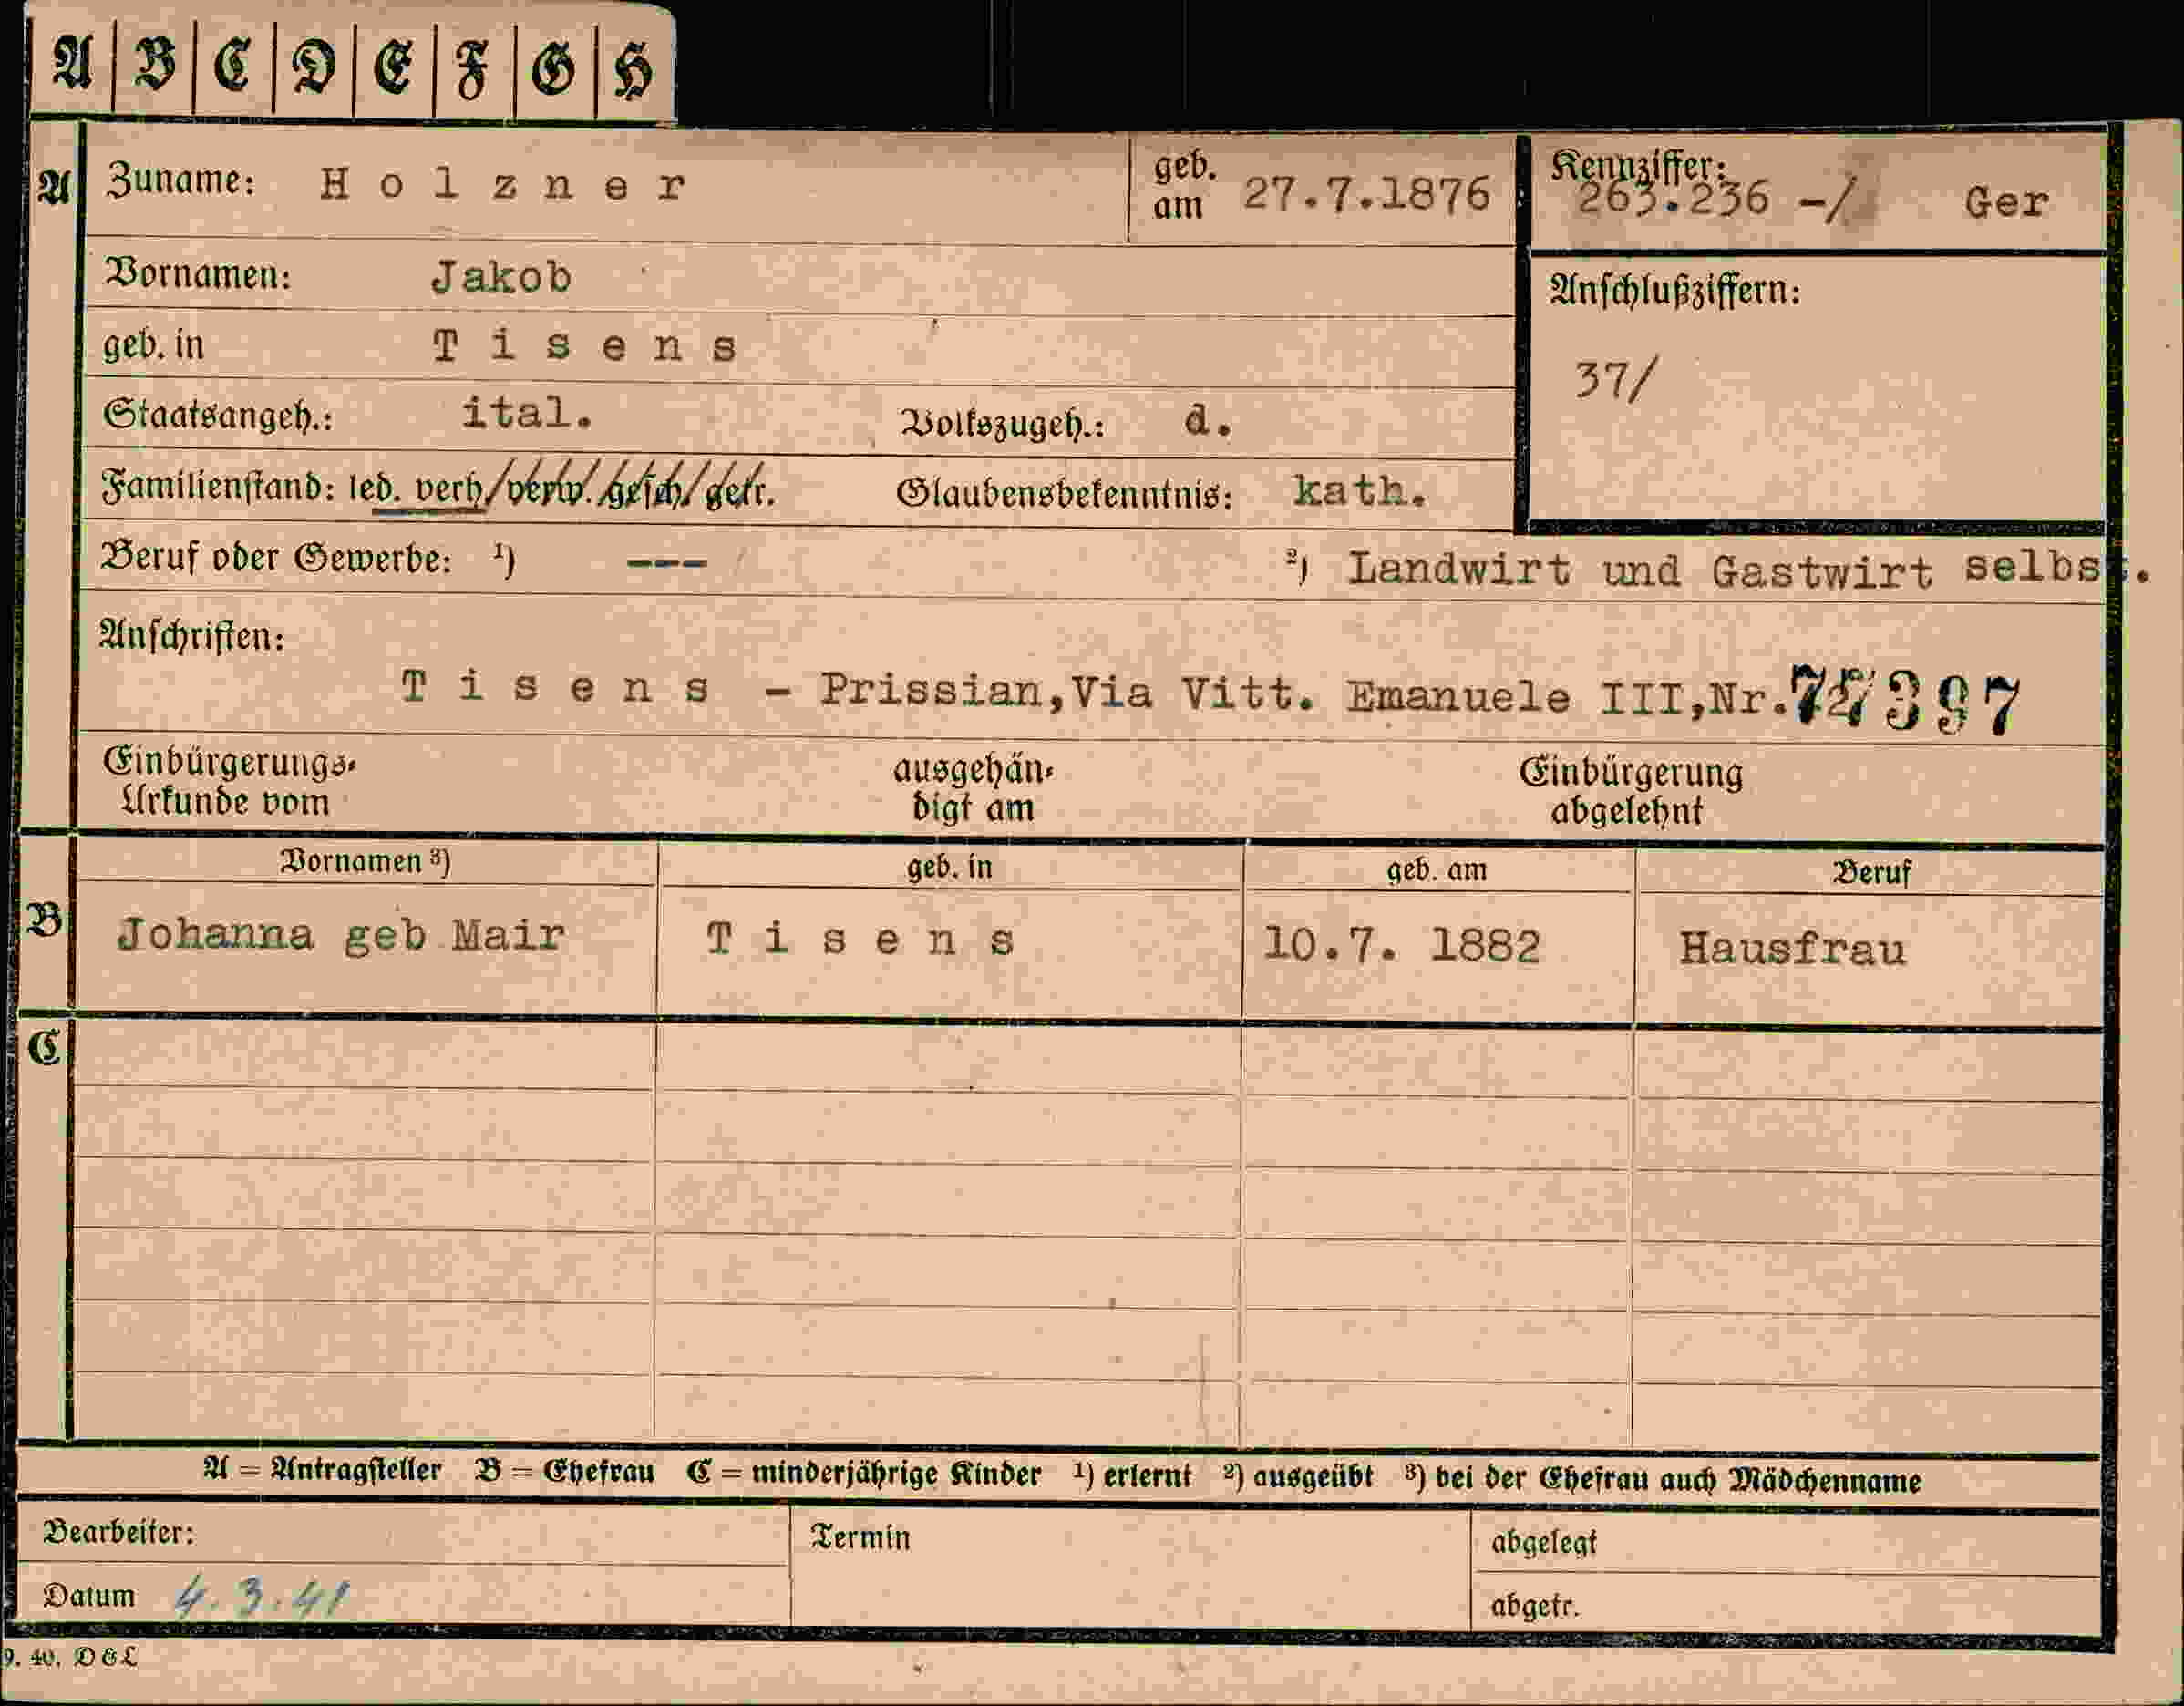 A B C D E F G H
A Zuname: Holzner geb. am 27.7.1876 Kennziffer: 263.236 -/ Ger
Vornamen: Jakob Anschlußziffern:
geb. in Tisens 37/
Staatsangeh.: ital. Volkszugeh.: d.
Familienstand: led. verh/verw./gesch/getr. Glaubensbekenntnis: kath.
Beruf oder Gewerbe: 1) --- 2) Landwirt und Gastwirt selbst.
Anschriften:
Tisens - Prissian, Via Vitt. Emanuele III, Nr.
Einbürgerungs- ausgehän- Einbürgerung
Urkunde vom digt am abgelehnt
Vornamen 3) geb. in geb. am Beruf
B Johanna geb Mair Tisens 10.7. 1882 Hausfrau
C
A = Antragsteller B = Ehefrau C = minderjährige Kinder 1) erlernt 2) ausgeübt 3) bei der Ehefrau auch Mädchenname
Bearbeiter: Termin abgelegt
Datum 4.3.41 abgetr.
9. 40. D&L